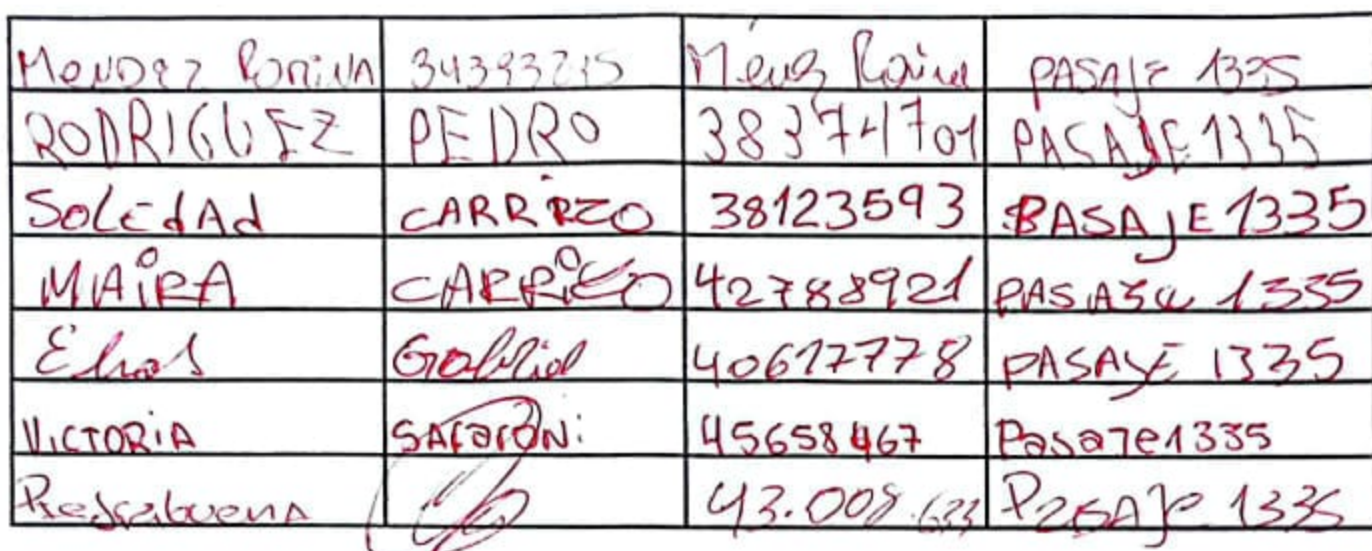 Mendez Romina 34393215 PASAJE 1335
RODRIGUEZ PEDRO 383741701 PASAJE 1335
SOLEdAd CARRIZO 38123593 BASAJE 1335
MAiRA CARRiZO 42788921 PASAJe 1335
Elias Gabriel 40617778 PASAJE 1335
VICTORiA SAraroNi 45658467 Pasaje 1335
Piedrabuena 43.008.633 PasAje 1335